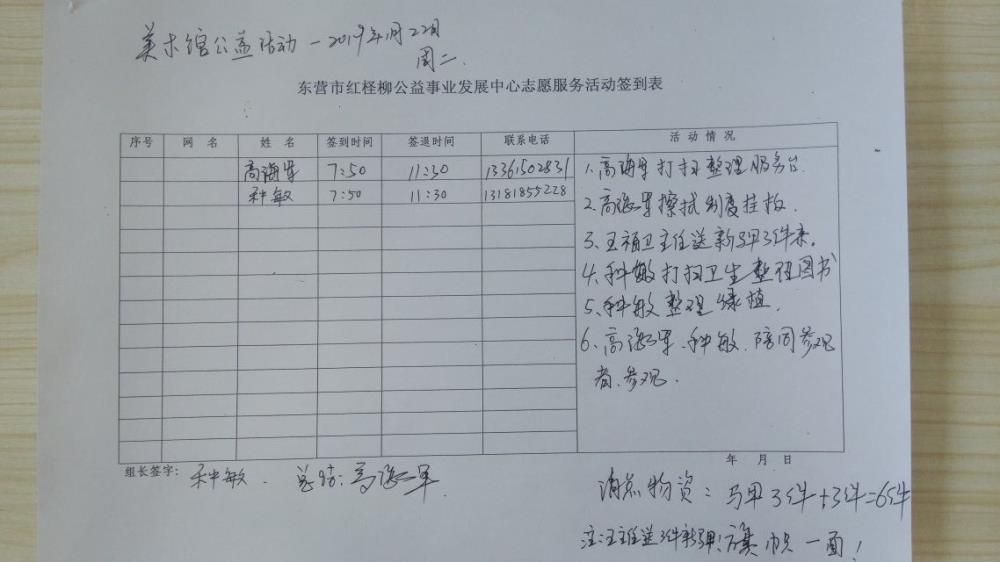 美术馆公益活动－2019年1月22日
周二.
东营市红柽柳公益事业发展中心志愿服务活动签到表
序号 网名 姓名 签到时间 签退时间 联系电话 活动情况
高海军 7:50 11:30 13361502831
种敏 7:50 11:30 13181855228
1.高海军打扫整理服务台.
2.高海军擦拭制度挂板.
3、王福卫主任送新马甲3件来.
4.种敏打扫卫生整理图书
5、种敏整理绿植.
6、高海军、种敏.陪同参观
者.参观.
年 月 日
组长签字: 种敏. 总结:高海军.
清点物资: 马甲3件+3件=6件
注:王主任送3件新马甲! 旗帜一面!